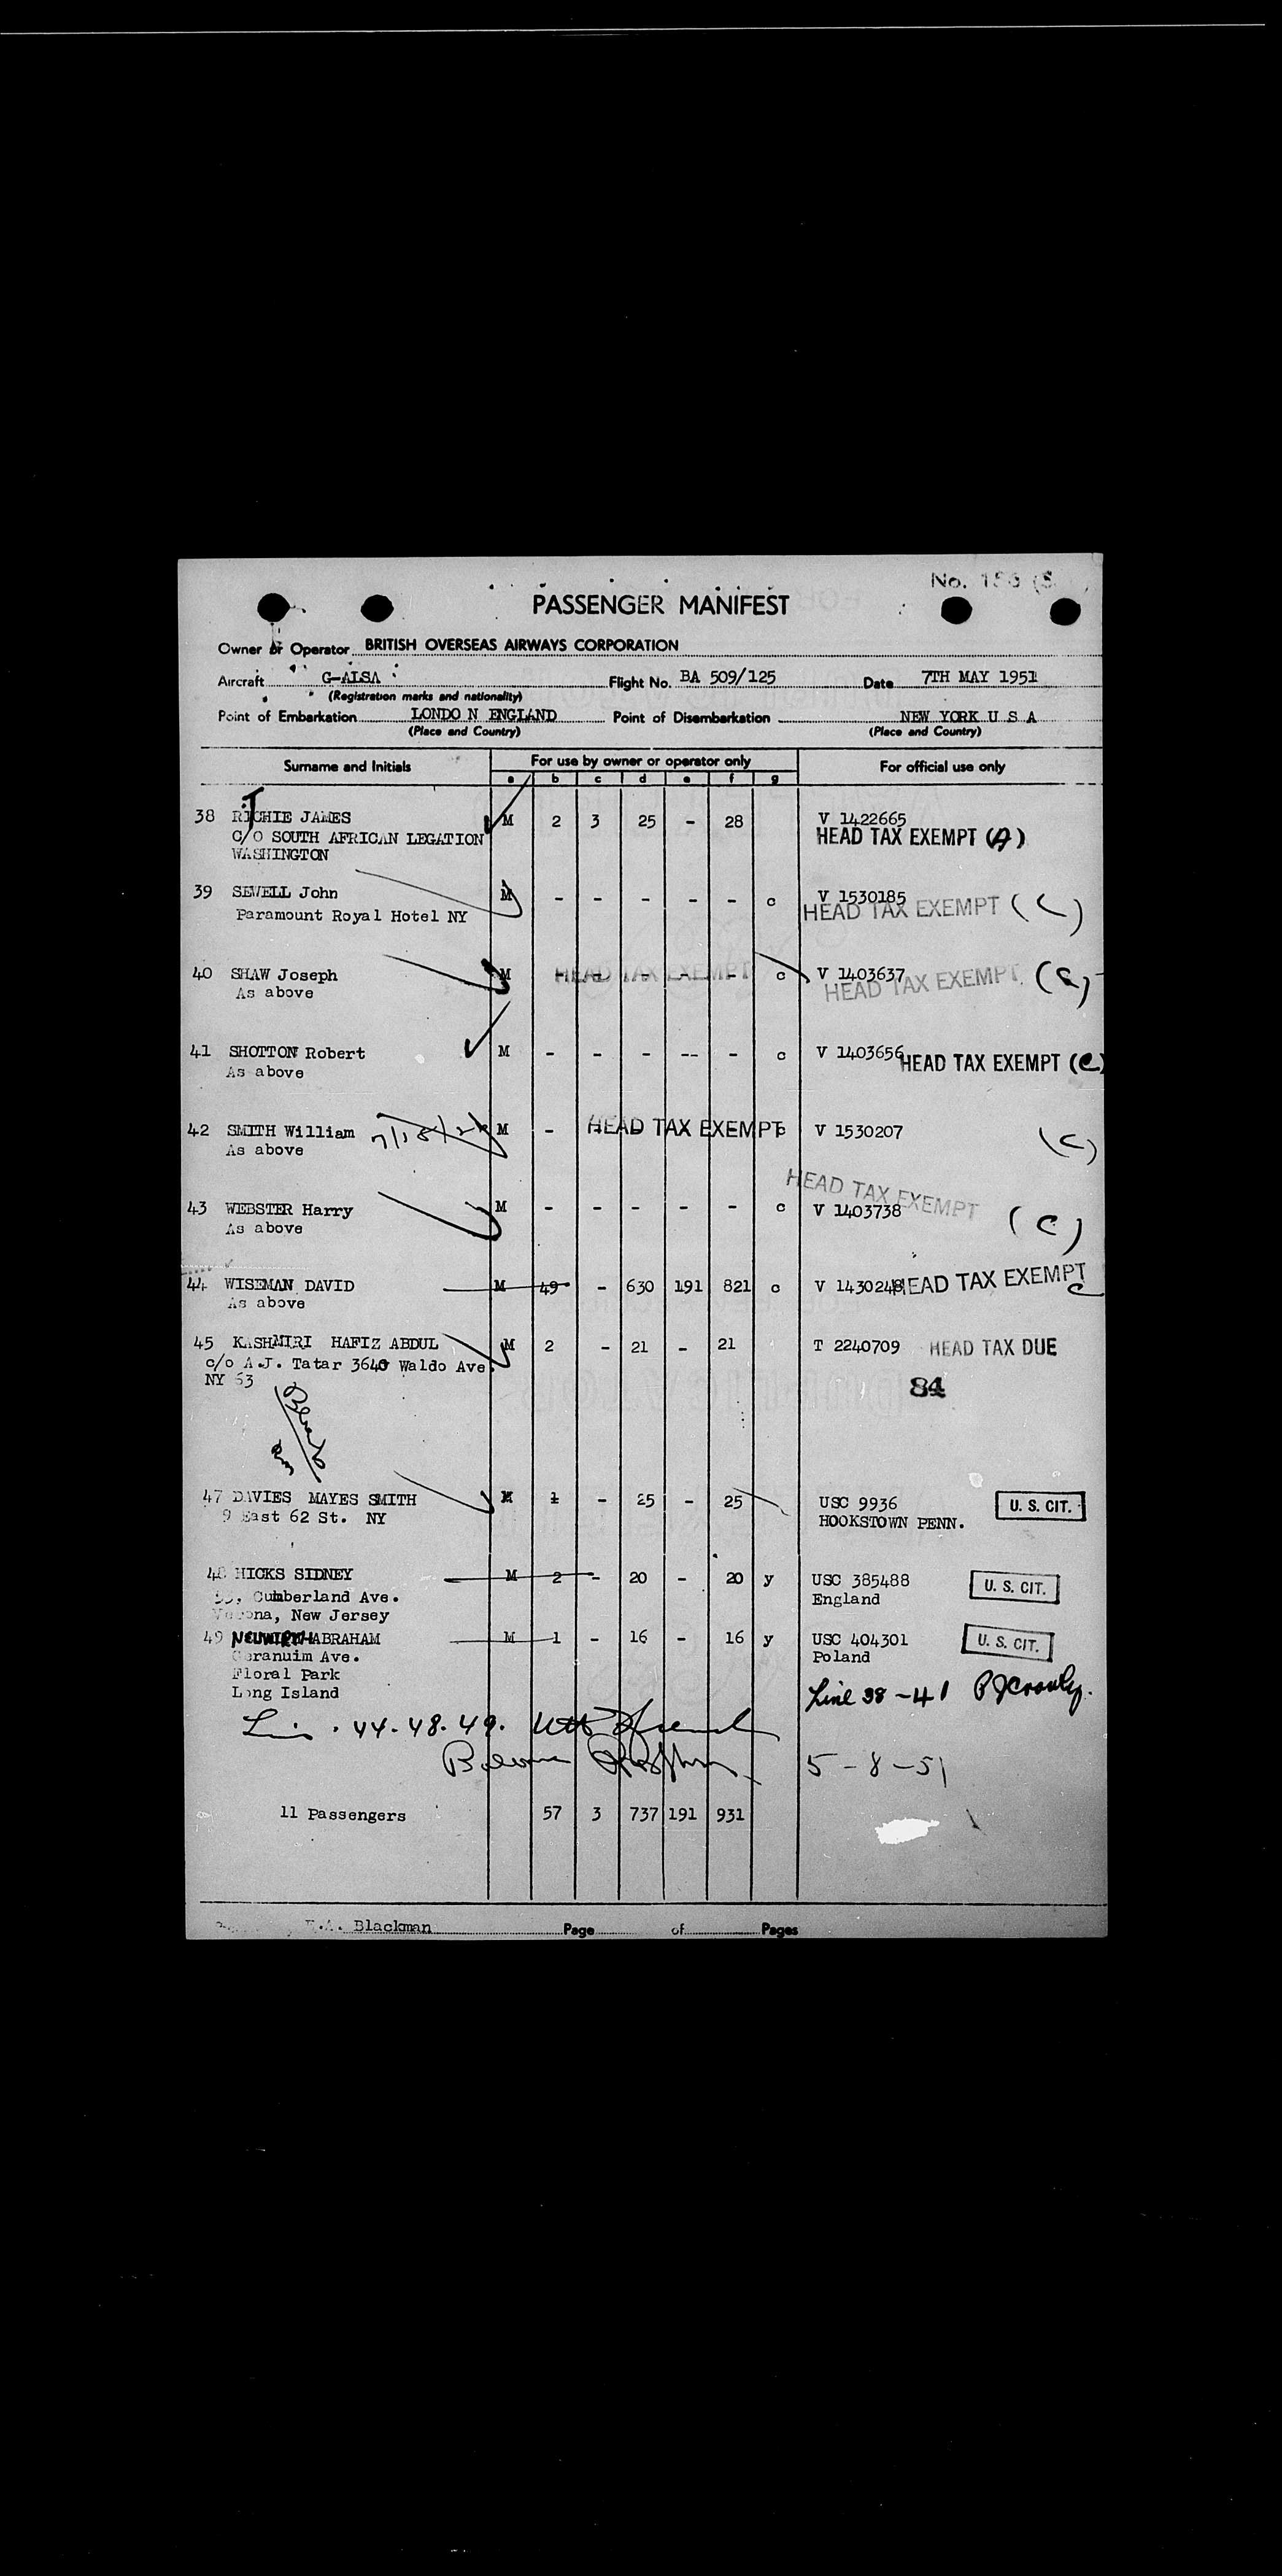 No. 186 (S
PASSENGER MANIFEST
Owner or Operator BRITISH OVERSEAS AIRWAYS CORPORATION
Aircraft G-ALSA Flight No. BA 509/125 Date 7TH MAY 1951
(Registration marks and nationality)
Point of Embarkation LONDO N ENGLAND Point of Disembarkation NEW YORK U S A
(Place and Country) (Place and Country)
Surname and Initials For use by owner or operator only For official use only
a b c d e f g
38 RITCHIE JAMES M 2 3 25 - 28 V 1422665
C/O SOUTH AFRICAN LEGATION HEAD TAX EXEMPT (A)
WASHINGTON
39 SEWELL John M - - - - - c V 1530185
Paramount Royal Hotel NY HEAD TAX EXEMPT (C)
40 SHAW Joseph M HEAD TAX EXEMPT - - - - - c V 1403637
As above HEAD TAX EXEMPT (C)
41 SHOTTON Robert M - - - -- - c V 1403656 HEAD TAX EXEMPT (C)
As above
42 SMITH William 7/18/21 M - HEAD TAX EXEMPT c V 1530207 (C)
As above
HEAD TAX EXEMPT
43 WEBSTER Harry M - - - - - c V 1403738 (C)
As above
44 WISEMAN DAVID M 49 - 630 191 821 c V 1430248 HEAD TAX EXEMPT C
As above
45 KASHMIRI HAFIZ ABDUL M 2 - 21 - 21 T 2240709 HEAD TAX DUE
c/o A.J. Tatar 3640 Waldo Ave.
NY 63 84
47 DAVIES MAYES SMITH M 1 - 25 - 25 USC 9936 U. S. CIT.
9 East 62 St. NY HOOKSTOWN PENN.
48 HICKS SIDNEY M 2 - 20 - 20 y USC 385488 U. S. CIT.
Cumberland Ave. England
Verona, New Jersey
49 NEUWIRTH ABRAHAM M 1 - 16 - 16 y USC 404301 U. S. CIT.
Geranuim Ave. Poland
Floral Park
Long Island Line 38-41 PJCrowley.
44. 48. 49.
5-8-51
11 Passengers 57 3 737 191 931
Blackman Page of Pages